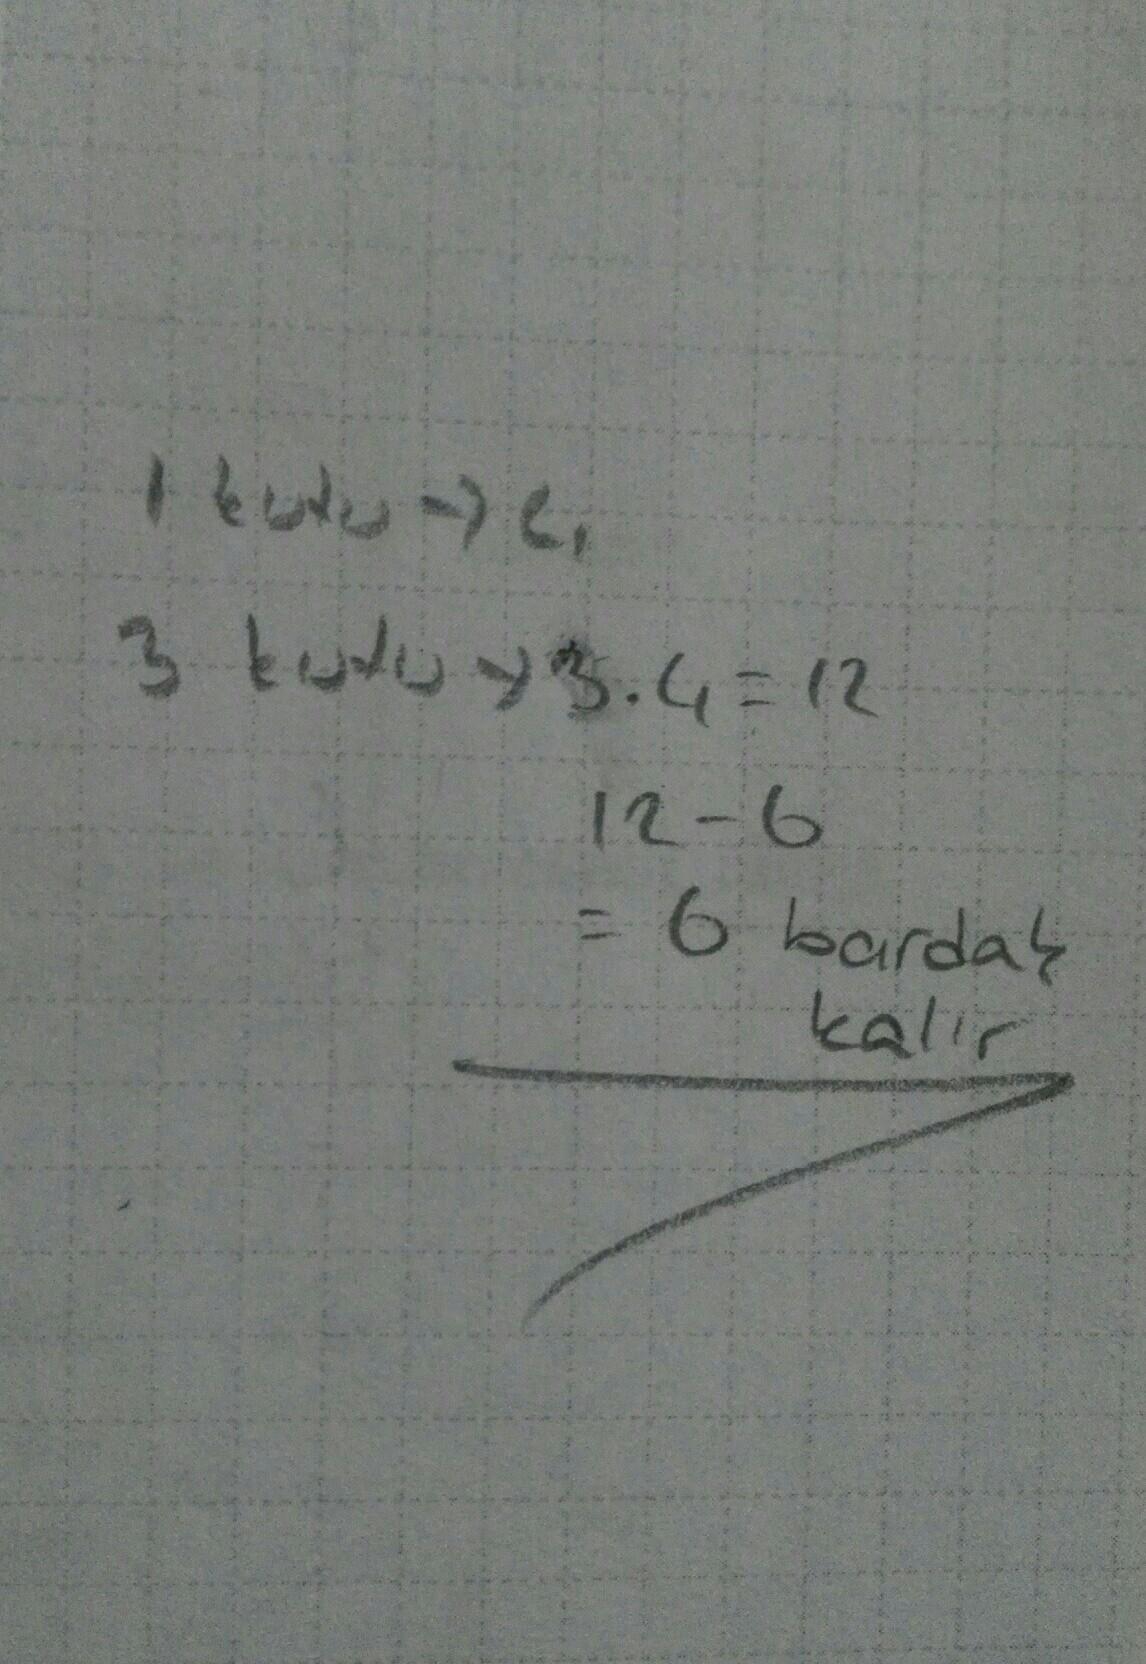 1 kutu → 4
3 kutu → 3.4 = 12
12 - 6
= 6 bardak
kalır